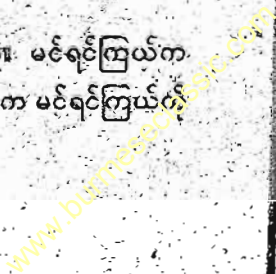 ။ မင်ရင်ကြယ်က
က မင်ရင်ကြယ်ကို
www.burmeseclassic.com